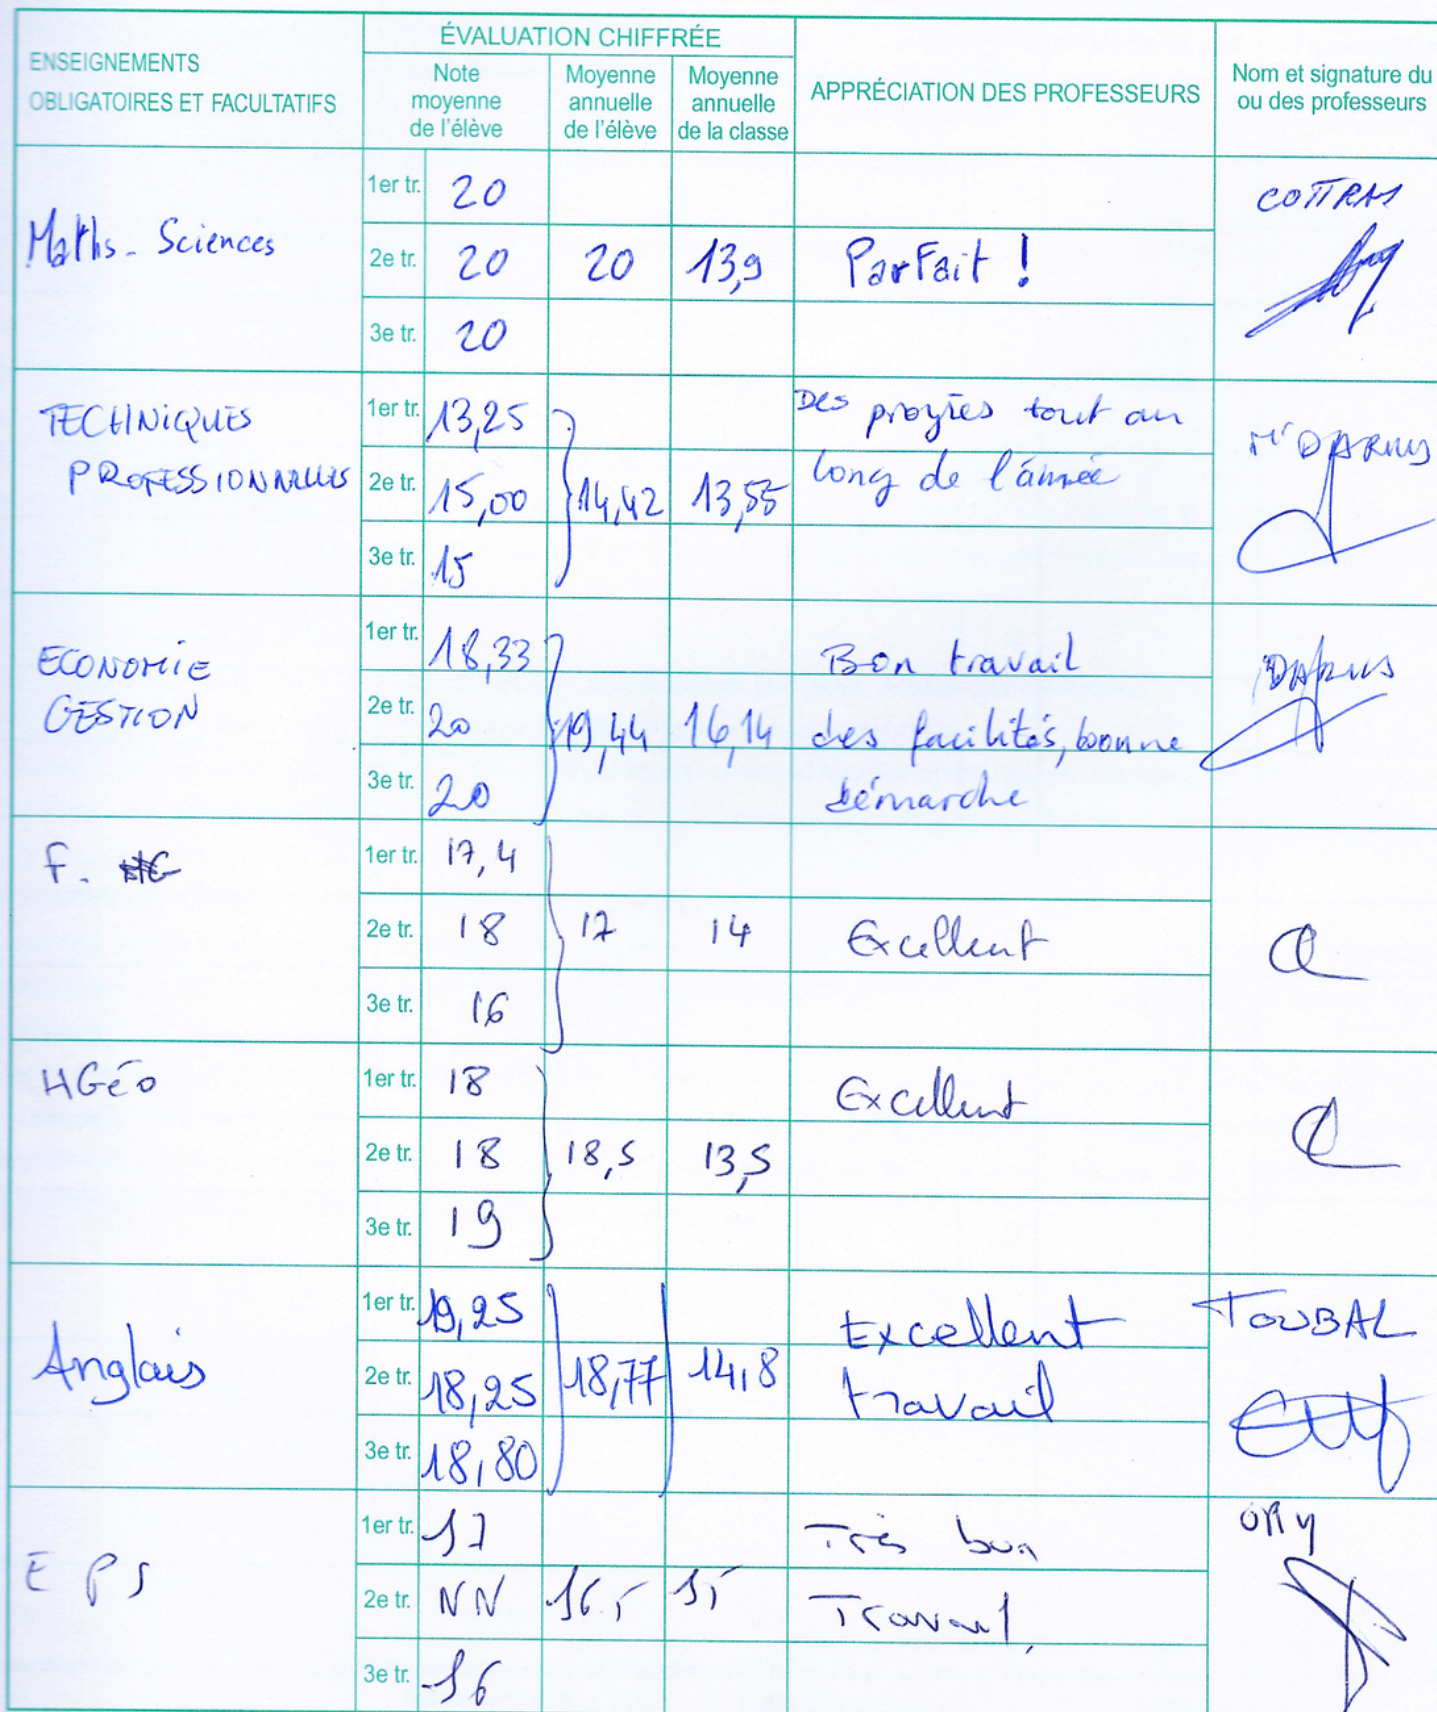 ENSEIGNEMENTS
OBLIGATOIRES ET FACULTATIFS
ÉVALUATION CHIFFRÉE
Note
moyenne
de l'élève
Moyenne
annuelle
de l'élève
Moyenne
annuelle
de la classe
APPRÉCIATION DES PROFESSEURS
Nom et signature du
ou des professeurs
Maths - Sciences
1er tr. 20
2e tr. 20 20 13,9 Parfait !
3e tr. 20
TECHNIQUES
PROFESSIONNELLES
1er tr. 13,25 Des progrès tout au
2e tr. 15,00 14,42 13,55 long de l'année
3e tr. 15
Mr DARNIS
ECONOMIE
GESTION
1er tr. 18,33 Bon travail
2e tr. 20 19,44 16,14 des facilités, bonne
3e tr. 20 démarche
DARNIS
F.
1er tr. 17,4
2e tr. 18 17 14 Excellent
3e tr. 16
HGéo
1er tr. 18 Excellent
2e tr. 18 18,5 13,5
3e tr. 19
Anglais
1er tr. 19,25 Excellent
2e tr. 18,25 18,77 14,8 travail
3e tr. 18,80
TOUBAL
EPS
1er tr. 17 Très bon
2e tr. NN 16.5 15 Travail
3e tr. 16